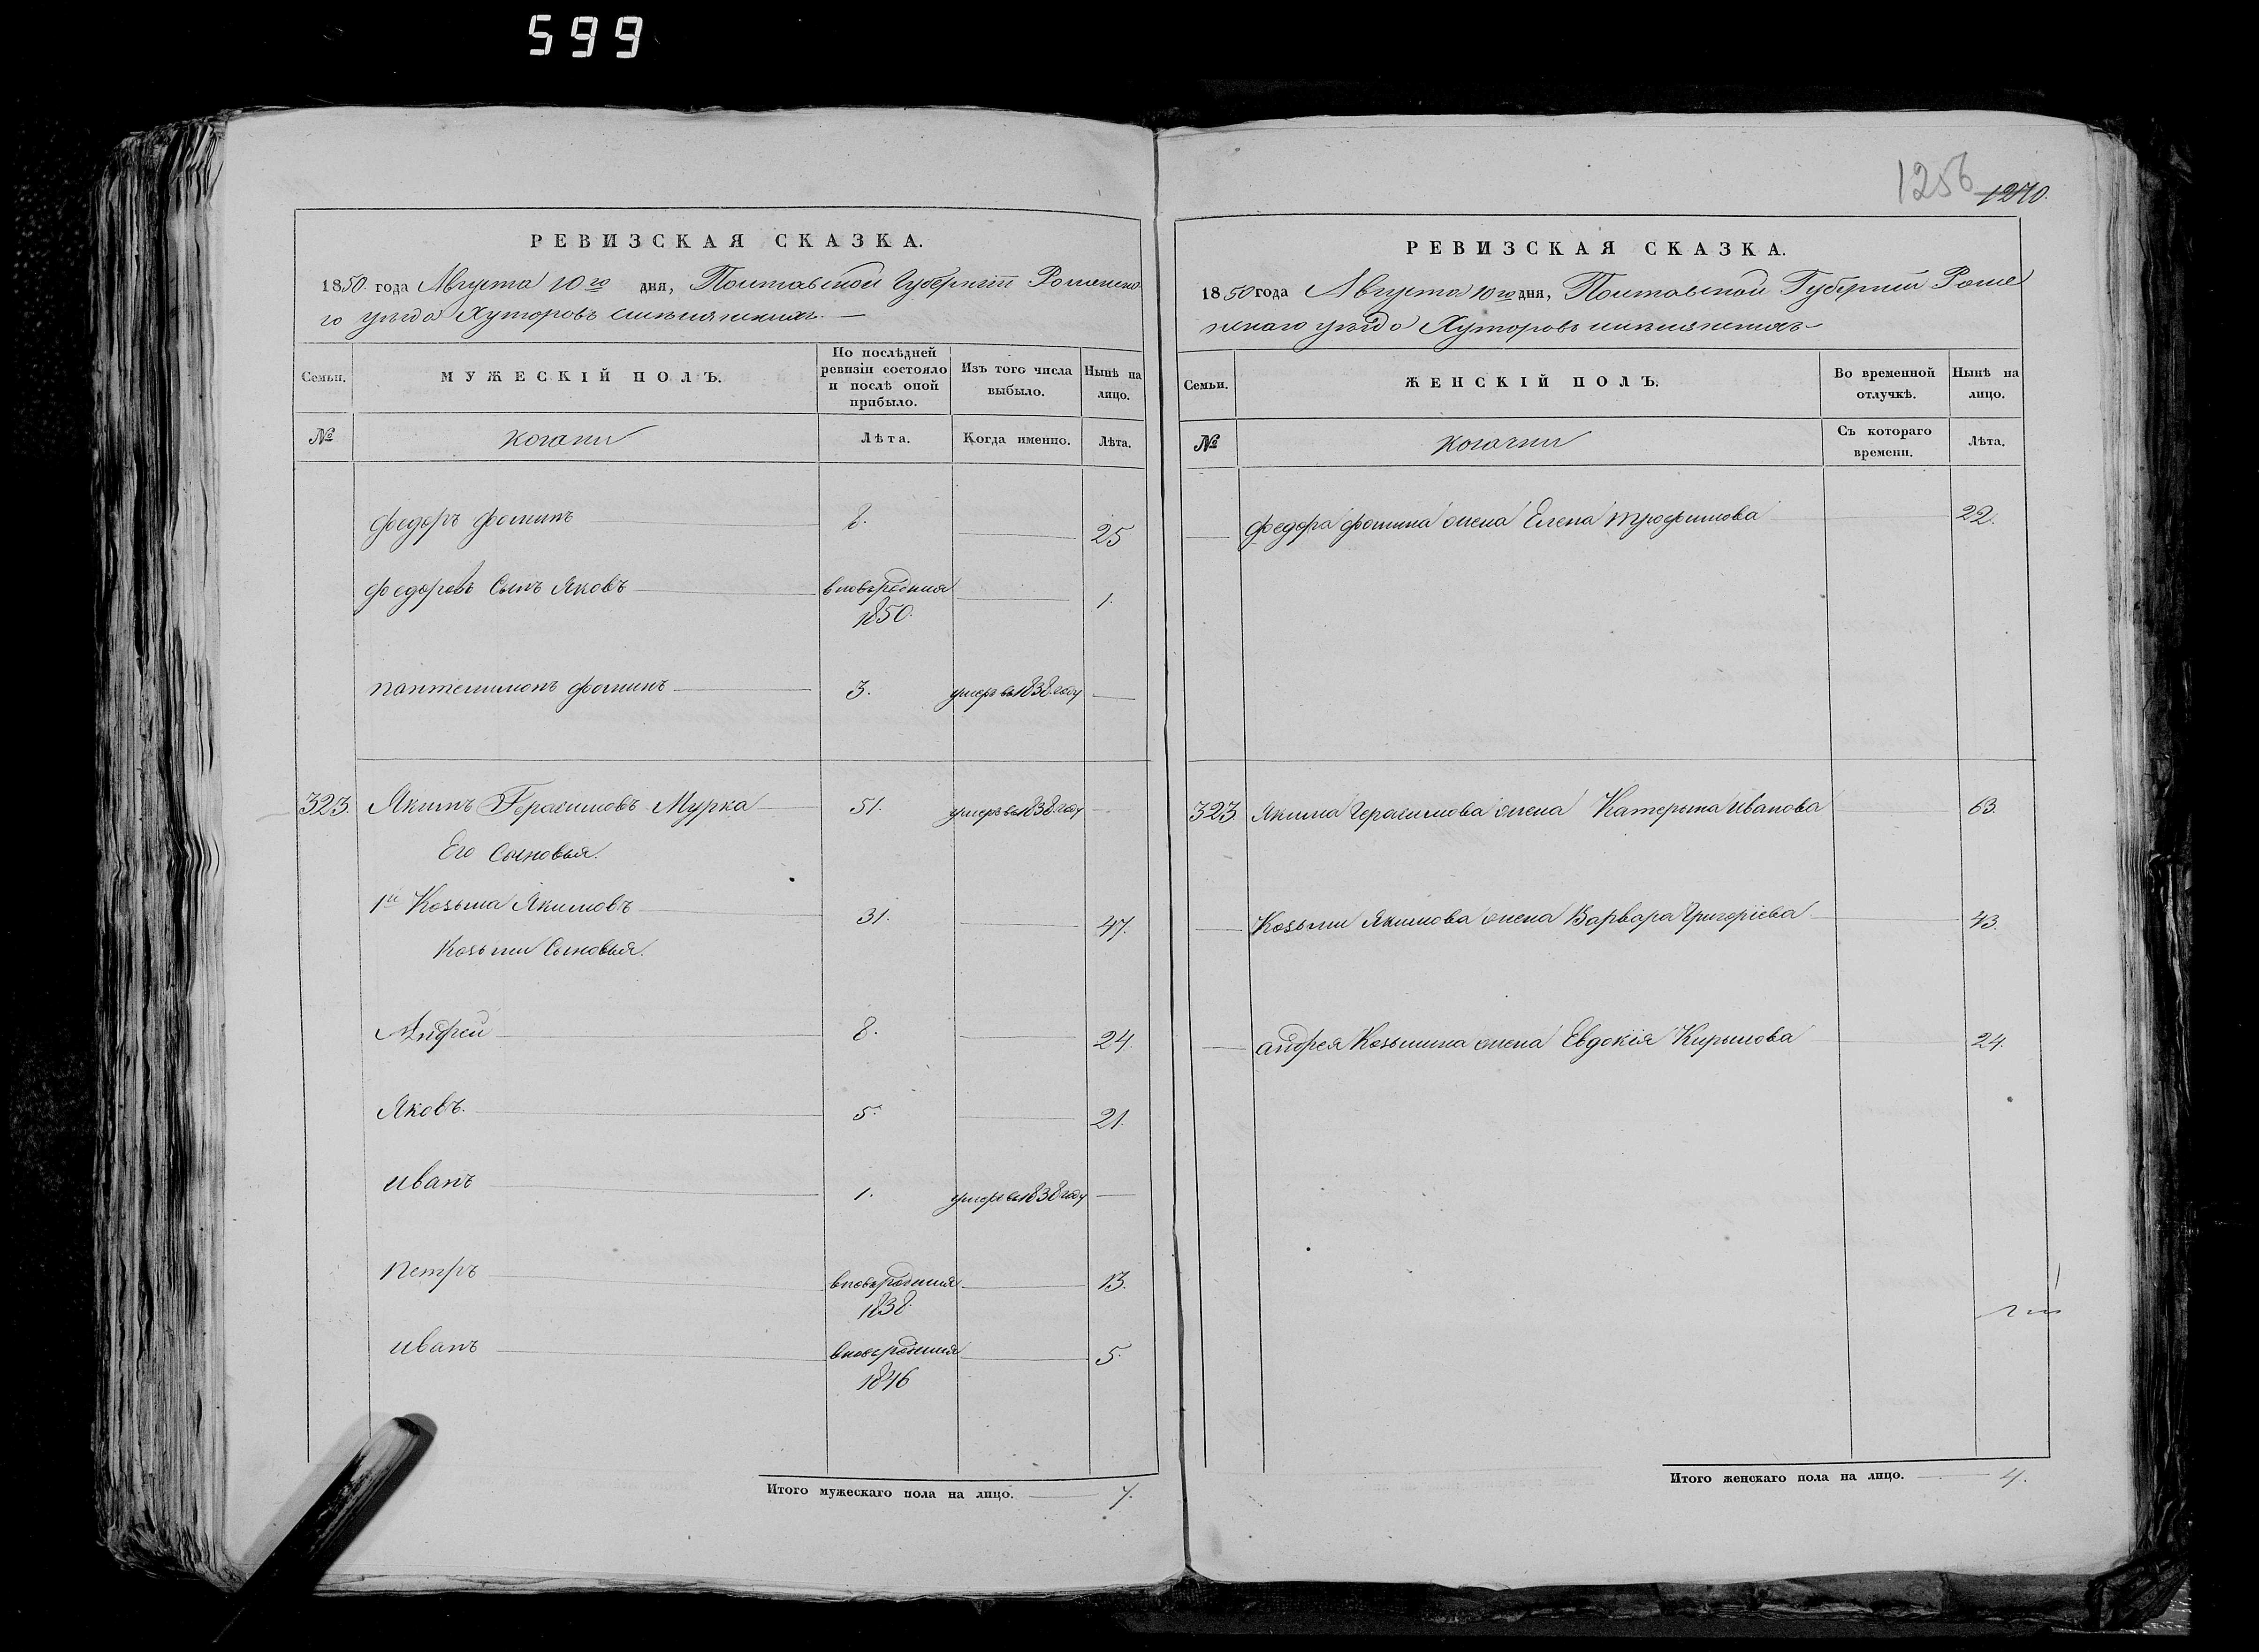 599
1256 1270.
РЕВИЗСКАЯ СКАЗКА.
1850. года Августа 10го дня, Полтавской Губернии Роменско-
го уѣзда Хуторовъ
Семьи.
МУЖЕСКІЙ ПОЛЪ.
По послѣдней ревизіи состояло и послѣ оной прибыло.
Изъ того числа выбыло.
Нынѣ на лицо.
№
Лѣта.
Когда именно.
Лѣта.
Федоръ Фоминъ 8. 25
Федоровъ Сынъ Яковъ вновьрожденъ 1850. 1.
Пантелимонъ Фоминъ 3. умеръ въ 1838. году
323. Якимъ Герасимовъ Мурка 51. умеръ въ 1838. году
Его Сыновья.
1й Козьма Якимовъ 31. 47.
Козьмы Сыновья.
Андрей 8. 24.
Яковъ. 5. 21.
Иванъ 1. умеръ въ 1838 году
Петръ 1838. 13.
Иванъ 1846 5.
Итого мужескаго пола на лицо. 7.
РЕВИЗСКАЯ СКАЗКА.
1850 года Августа 10го дня, Полтавской Губернии Роме
нскаго уѣзда Хуторовъ
Семьи.
ЖЕНСКІЙ ПОЛЪ.
Во временной отлучкѣ.
Нынѣ на лицо.
№
Съ котораго времени.
Лѣта.
Федора Фомина жена Елена Трофимова 22.
323. Якима Герасимова жена Катерына Иванова 63.
Козьмы Якимова жена Варвара Григоріева 43.
Андрея Козьмина жена Евдокія Кирылова 24.
Итого женскаго пола на лицо. 4.